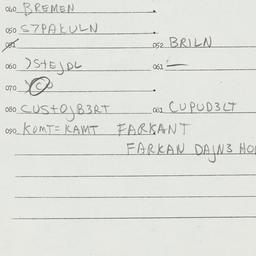 040 BREMEN
050 S7PAKULN
051 052 BRILN
060 )S+EJDL 061 —
070
080 CUS+OJB3RT 081 CUPUD3LT
090 KOMT=KAMT FARKANT
FARKAN DAJN3 HO